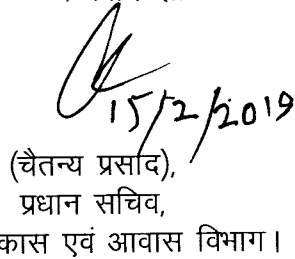 15/2/2019
(चैतन्य प्रसाद),
प्रधान सचिव,
कास एवं आवास विभाग।